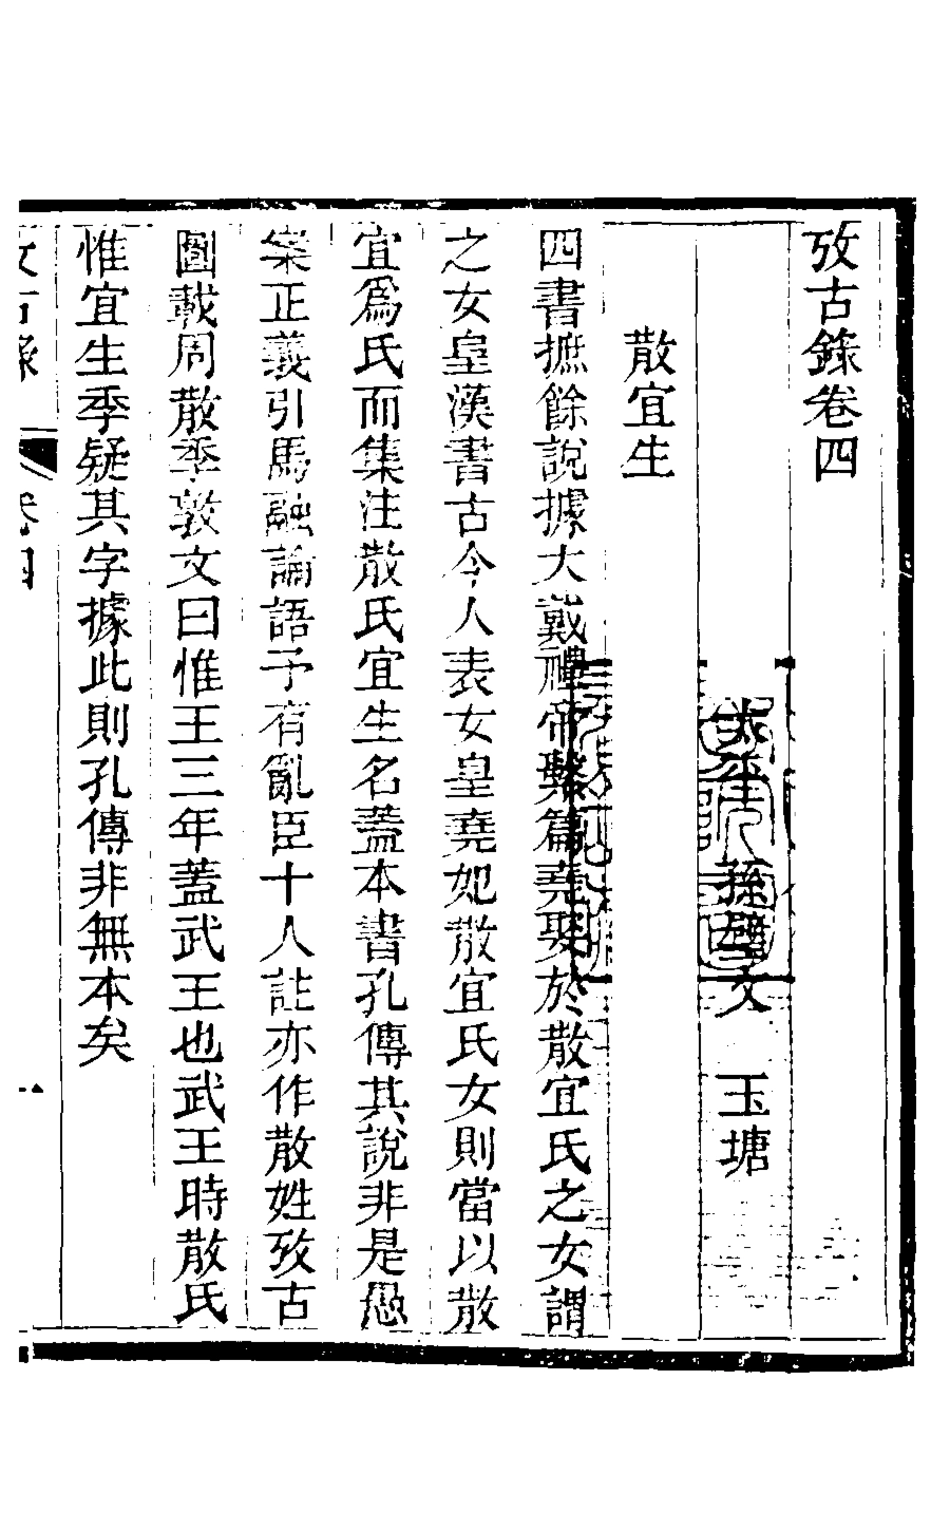 攷古錄卷四
太平 孫璧文 玉塘
散宜生
四書摭餘說據大戴禮帝繫篇堯娶於散宜氏之女謂
之女皇漢書古今人表女皇堯妃散宜氏女則當以散
宜爲氏而集注散氏宜生名蓋本書孔傳其說非是愚
案正義引馬融論語予有亂臣十人註亦作散姓攷古
圖載周散季敦文曰惟王三年蓋武王也武王時散氏
惟宜生季疑其字據此則孔傳非無本矣
攷古錄 卷四 一